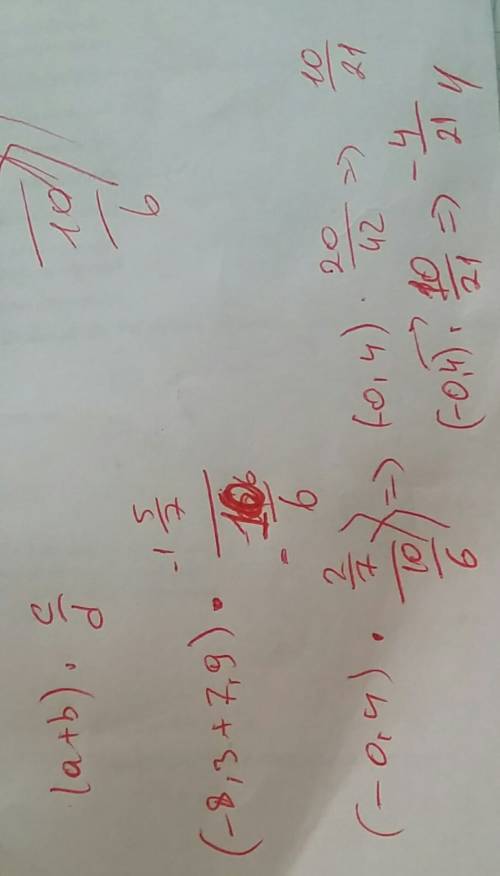 (a+b) · c/d
(-8,3+7,9) · (-1 5/7)/(-10/6)
(-0,4) · (2/7)/(10/6) => (-0,4) · 20/42 => 10/21
(-0,4) · 10/21 => -4/21 y
10/6